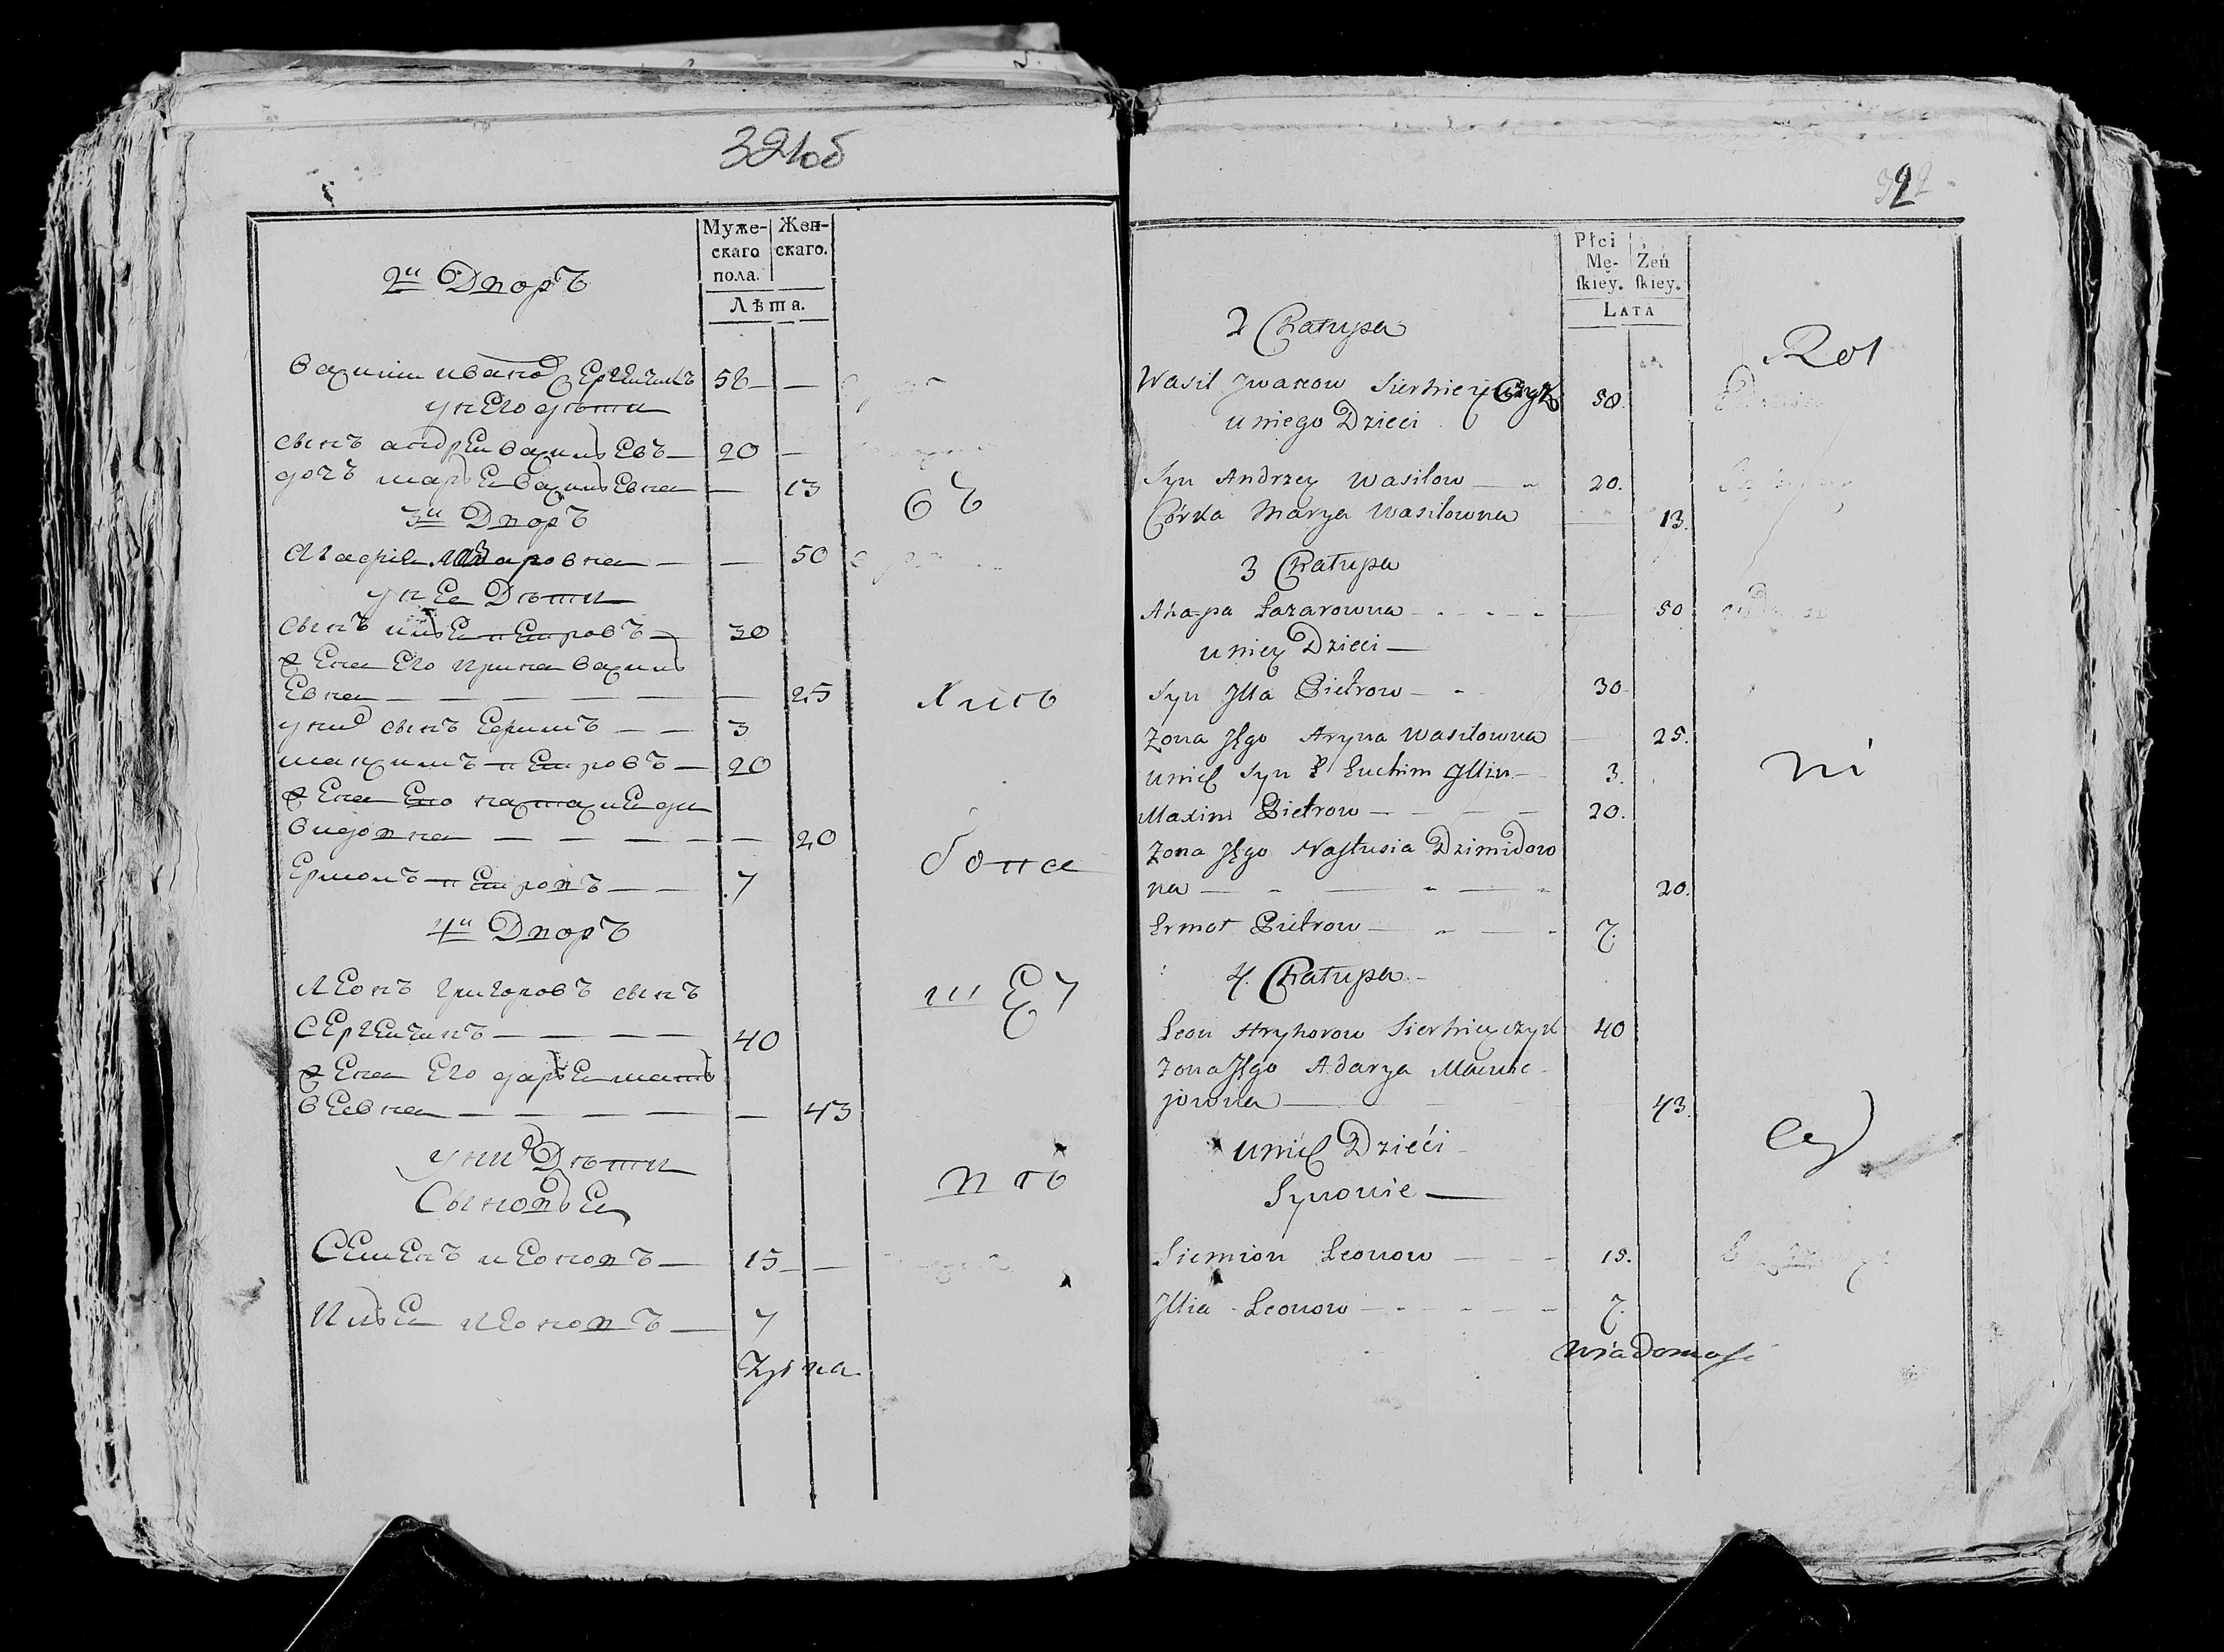 321об
Муже-
скаго
пола.
Жен-
скаго.
Лѣта.
2й Дворъ
Василий Иванов Сергейчикъ 58 — —
у него дѣти
сынъ андрей васильевъ — 20 —
дочъ марья васильевна — 13
3й Дворъ
Агафия Лазаровна — — 50
у нее Дѣти
сынъ илья петровъ — 30
жена его ирина василь
евна — — — — — — 25
у них сынъ ефимъ — — 3
максимъ петровъ — 20
жена его настасия де
видовна — — — — — — 20
Ермолъ петровъ — — 7
4й Дворъ
леонъ григоровъ сынъ
сергейчикъ — — — — 40
жена его дарья мать
веевна — — — — — 43
у них Дѣти
Сыновья
Семенъ леоновъ — 15 — —
Илья леоновъ — 7
съ
хисъ
псб
322
Płci
Mę-
skiey.
Żeń
skiey.
LATA
2 Chałupa
Wasil Jwanow Sierhieyczyk 58.
u niego Dzieci
Syn Andrzey Wasilow — 20.
Córka Marya Wasilowna — 13.
3 Chałupa
Ahapa Łazarowna - - - - - — 50.
u niey Dzieci —
Syn Jlla Pietrow — - 30
Żona Jego Aryna Wasilowna — 25.
u nich Syn Euchim Jllin — 3.
Maxim Pietrow — — — — 20.
Żona Jego Nastusia Dzimidow
na — - — - — - 20.
Ermoł Pietrow — - — - 7.
4. Chałupa -
Leon Hryhorow Sierhieyczyk 40
Żona Jego Adarya Macwie
jowna — 43.
u nich Dzieci -
Synowie —
Siemion Leonow — — - 15.
Jllia - Leonow — - — - — 7.
wiadomość
Rol
ni
cy